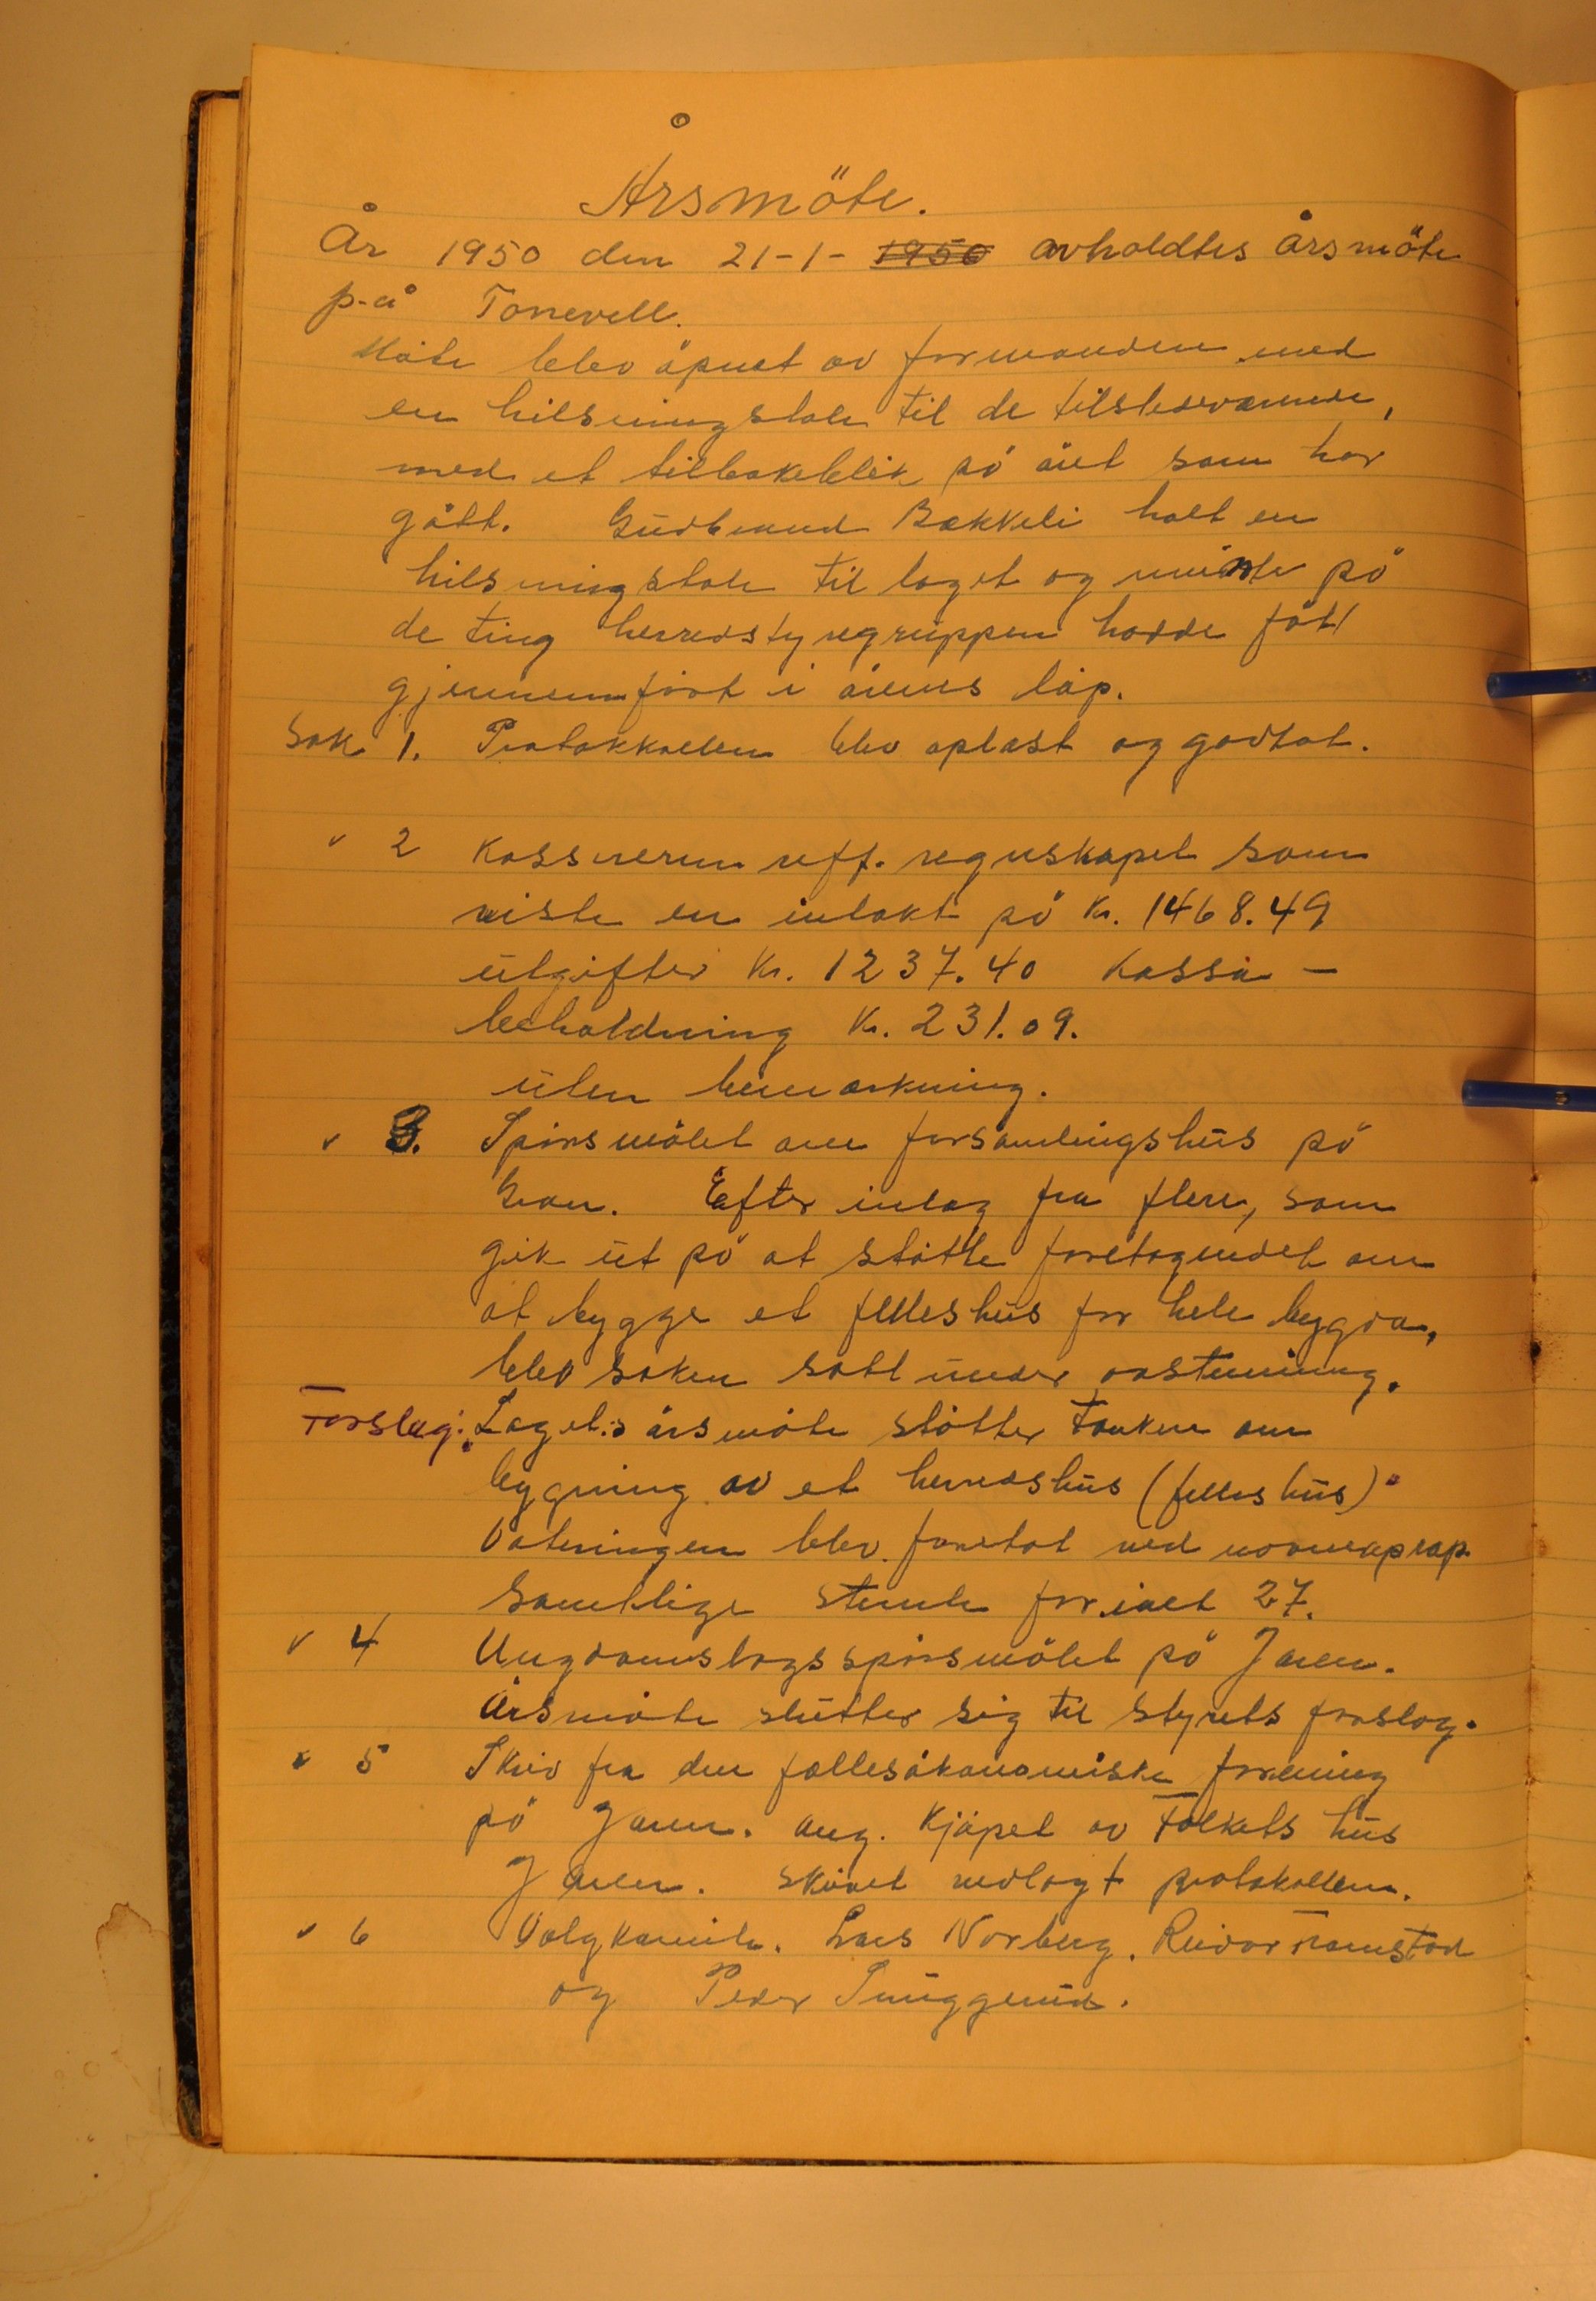 Årsmöte.
År 1950 den 21-1- 1950 avholdtes årsmöte
på Tonevell.
Möte blev åpnet av formanden med
en hilsningstale til de tilstedeværende,
med et tilbakeblik på året som har
gått. Gudbrand Bakkeli holt en
hilsningstale til laget og minte på
de ting herredstyregruppen hadde fått
gjennemfört i årenes löp.
Sak 1. Protokkollen blev oplæst og godtat.
" 2 Kassereren reff. regnskapet som
viste en intækt på Kr. 1468.49
utgifter Kr. 1237.40 Kassa-
beholdning Kr. 231.09.
uten bemærkning.
" 3. Spörsmålet om forsamlingshus på
Gran. Efter inlæg fra flere, som
gik ut på at stötte foretagendet om
at bygge et felleshus for hele bygda,
blev saken satt under avstemning.
Forslag: Laget:s årsmöte stötter tanken om
bygning av et herredshus (felleshus)"
Voteringen blev foretat ved navneoprop
samtlige stemte for ialt 27.
" 4 Ungdomslagsspörsmålet på Jaren.
Årsmöte slutter sig til styrets forslag.
" 5 Skriv fra den fællesökonomiske forening
på Jaren. ang. Kjöpet av Folkets hus
Jaren. skrivet vedlagt protokollen.
" 6 Valgkomite. Lars Norberg. Reidar Ramstad
og Peder